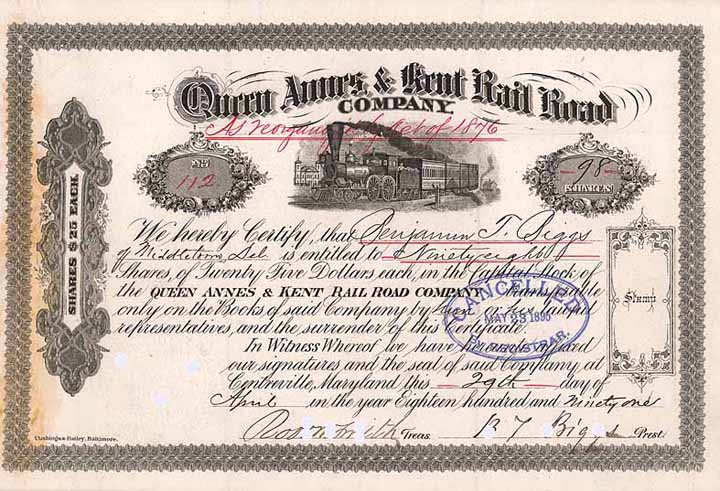 Queen Anne's & Kent Rail Road
COMPANY
As reorganized by Act of 1876
No.
112
98
SHARES
SHARES $25 EACH.
We hereby Certify, that Benjamin T. Biggs
of Middletown Del. is entitled to Ninety eight
Shares, of Twenty Five Dollars each, in the Capital Stock of
the QUEEN ANNE'S & KENT RAIL ROAD COMPANY, transferable
only on the Books of said Company by
representatives, and the surrender of this Certificate.
In Witness Whereof we have hereunto affixed
our signatures and the seal of said Company, at
Centreville, Maryland this 29th day of
April in the year Eighteen hundred and Ninety one
Treas. B T Biggs Prest.
CANCELLED
MAY 23
BY REGISTRAR.
Stamp
Cushings & Bailey, Baltimore.